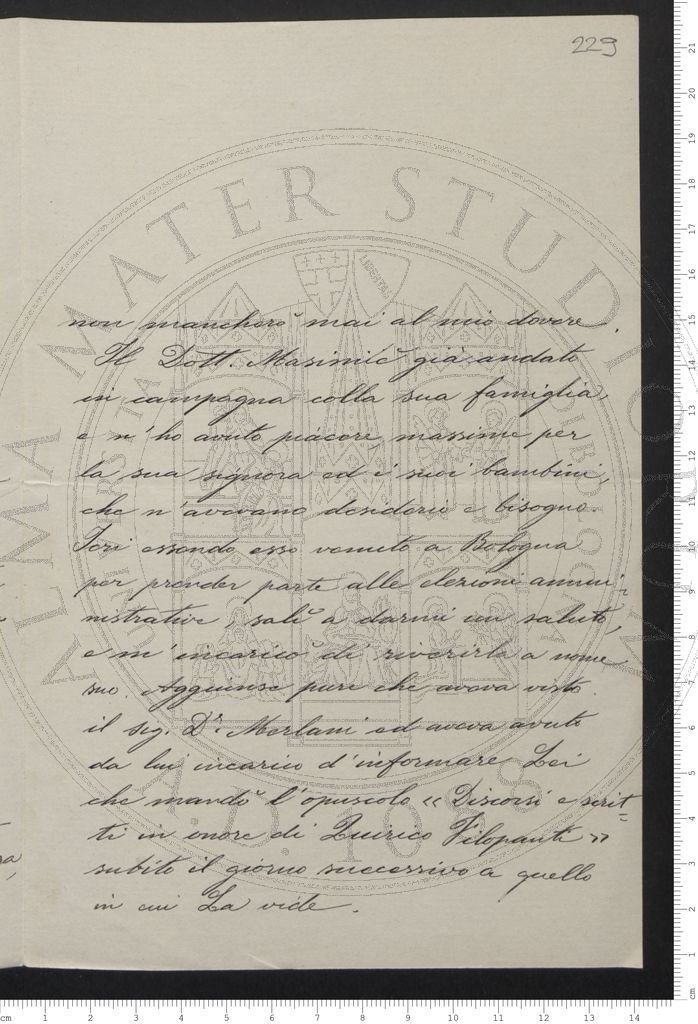 229
non mancherò mai al mio dovere.
Il Dott. Masimič già andato
in campagna colla sua famiglia,
e n'ho avuto piacere, massime per
la sua signora ed i suoi bambini,
che n'avevano desiderio e bisogno.
Ieri essendo esso venuto a Bologna
per prender parte alle elezioni ammi-
nistrative, salì a darmi un saluto,
e m'incaricò di riverirla a nome
suo. Aggiunse pure che aveva visto
il sig. Dr. Merlani ed aveva avuto
da lui incarico d'informare Lei
che mandò l'opuscolo « Discorsi e scrit-
ti in onore di Quirico Filopanti »
subito il giorno successivo a quello
in cui La vide.
ALMA MATER STUDIORUM
A.D. 1088
LIBERTAS
cm 1 2 3 4 5 6 7 8 9 10 11 12 13 14
21
20
19
18
17
16
15
14
13
12
11
10
9
8
7
6
5
4
3
2
1
cm